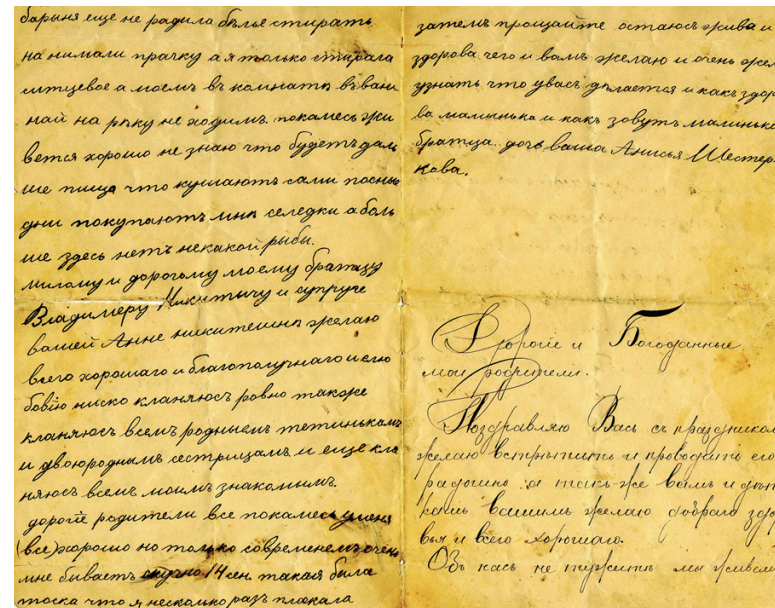 барыня еще не радила бѣлье стирать
на нимали прачку а я только стирала
ситцевое а моемъ въ комнатѣ въ ван
най на рѣку не ходимъ. покамесь жи
вется хорошо не знаю что будетъ дал
ше пища что кушаютъ сами посные
дни покупаютъ мнѣ селедки а боль
ше здесь нетъ некакой рыбы.
милому и дорогому моему братцу
Владимеру Никитычу и супруге
вашей Анне никитешнѣ желаю
всего хорошаго и благополучнаго и слю
бовію ниско кланяюсь ровно также
кланяюсь всемъ роднымъ тетинькамъ
и двоюроднымъ сестрицамъ и еще кла
няюсь всемъ моимъ знакомымъ.
дорогіе родители все покамесь у меня
(все) хорошо но только современемъ очень
мне бываетъ скучно 14 сен. такая была
тоска что я несколько разъ плакала
затемъ прощайте остаюсь жива и
здорова чего и вамъ желаю и очень жел
узнать что увасъ дѣлается и какъ здор
ва малинька и какъ зовутъ малинька
братца. дочь ваша Анисья Шестер
кова.
Дорогіе и Богоданные
мои родители.
Поздравляю Васъ съ праздником
желаю встрѣтить и проводить его
радошно а такъ-же вамъ и дѣт
камъ вашимъ желаю добраго здо
вья и всего хорошаго.
Объ насъ не тужитъ мы живем